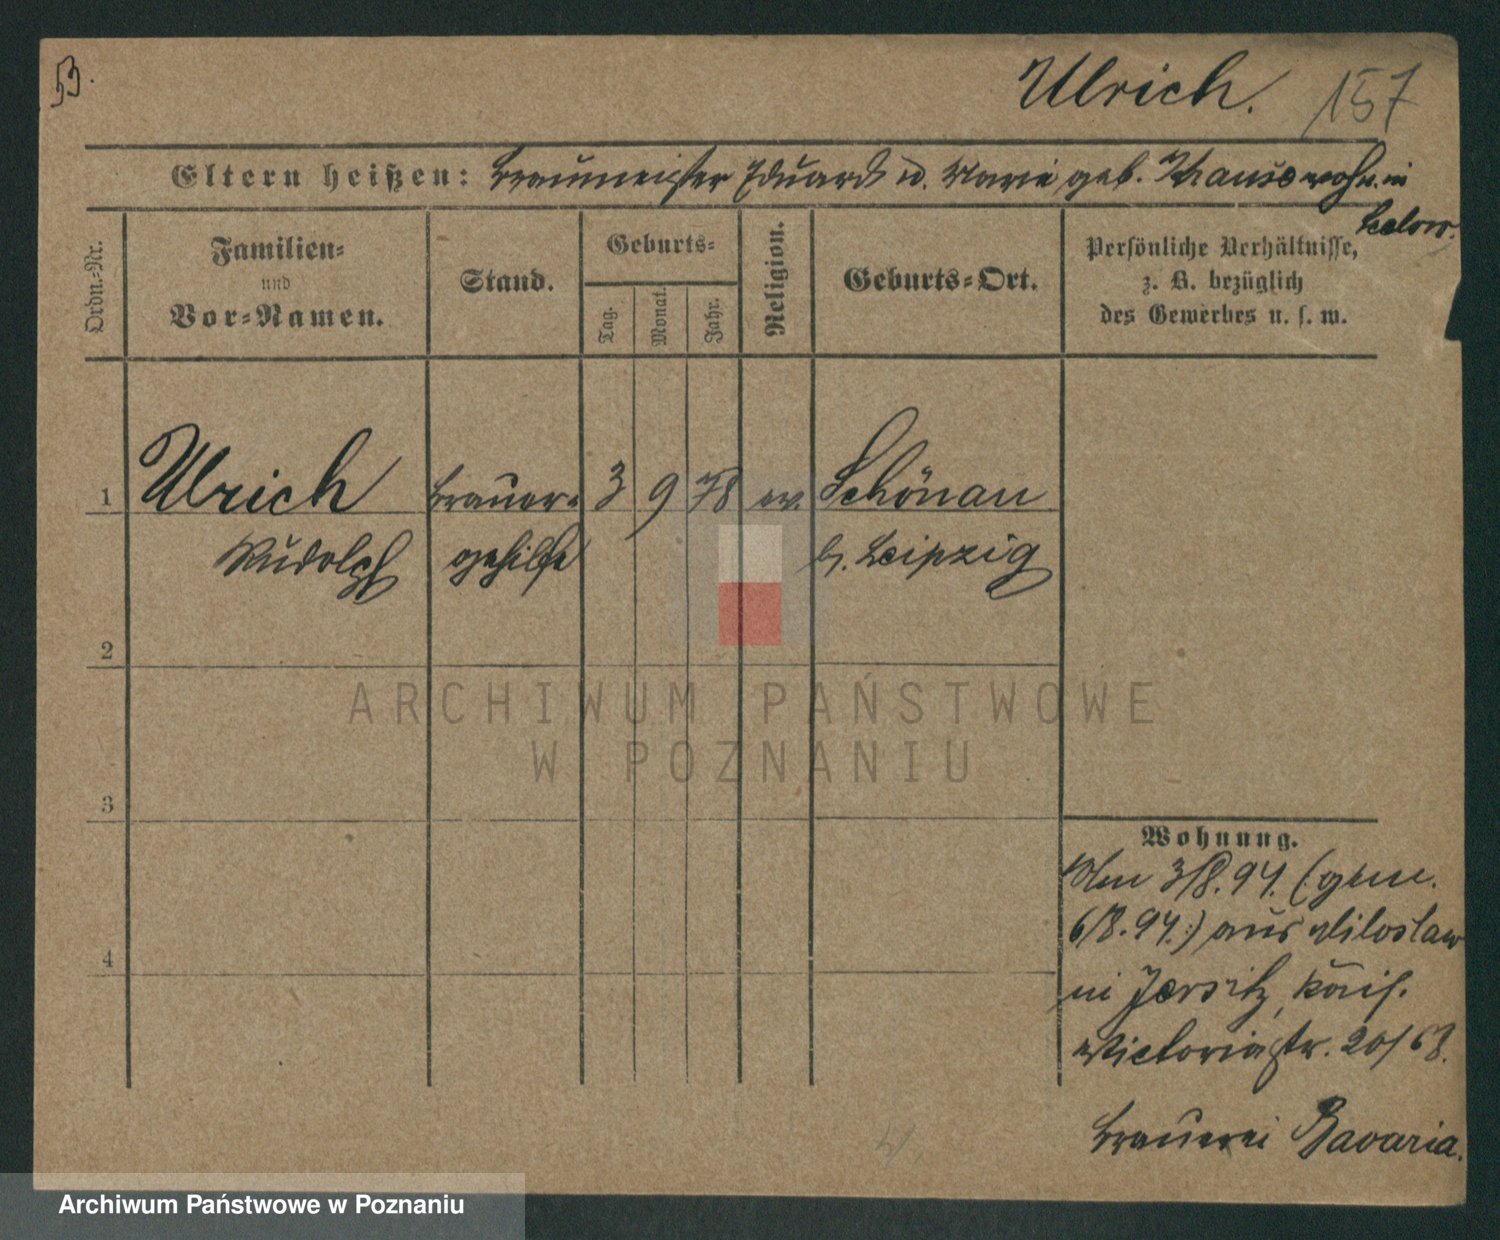 B.
Ulrich. 157
Eltern heißen: Braumeister Eduard u. Marie geb. Krause wohn. in
Ordn.-Nr.
Familien-
und
Vor-Namen.
Stand.
Geburts-
Tag.
Monat.
Jahr.
Religion.
Geburts-Ort.
Persönliche Verhältnisse,
z. B. bezüglich
des Gewerbes u. s. w.
1 Ulrich Brauer- 3 9 78 ev. Schönau
Rudolph gehilfe b. Leipzig
2
ARCHIWUM PAŃSTWOWE
W POZNANIU
3
Wohnung.
Am 3/8.94. (gem.
6/8.94.) aus Miloslaw
4
in Jersitz, Kais.
Victoriastr. 20/68.
Brauerei Bavaria.
Archiwum Państwowe w Poznaniu